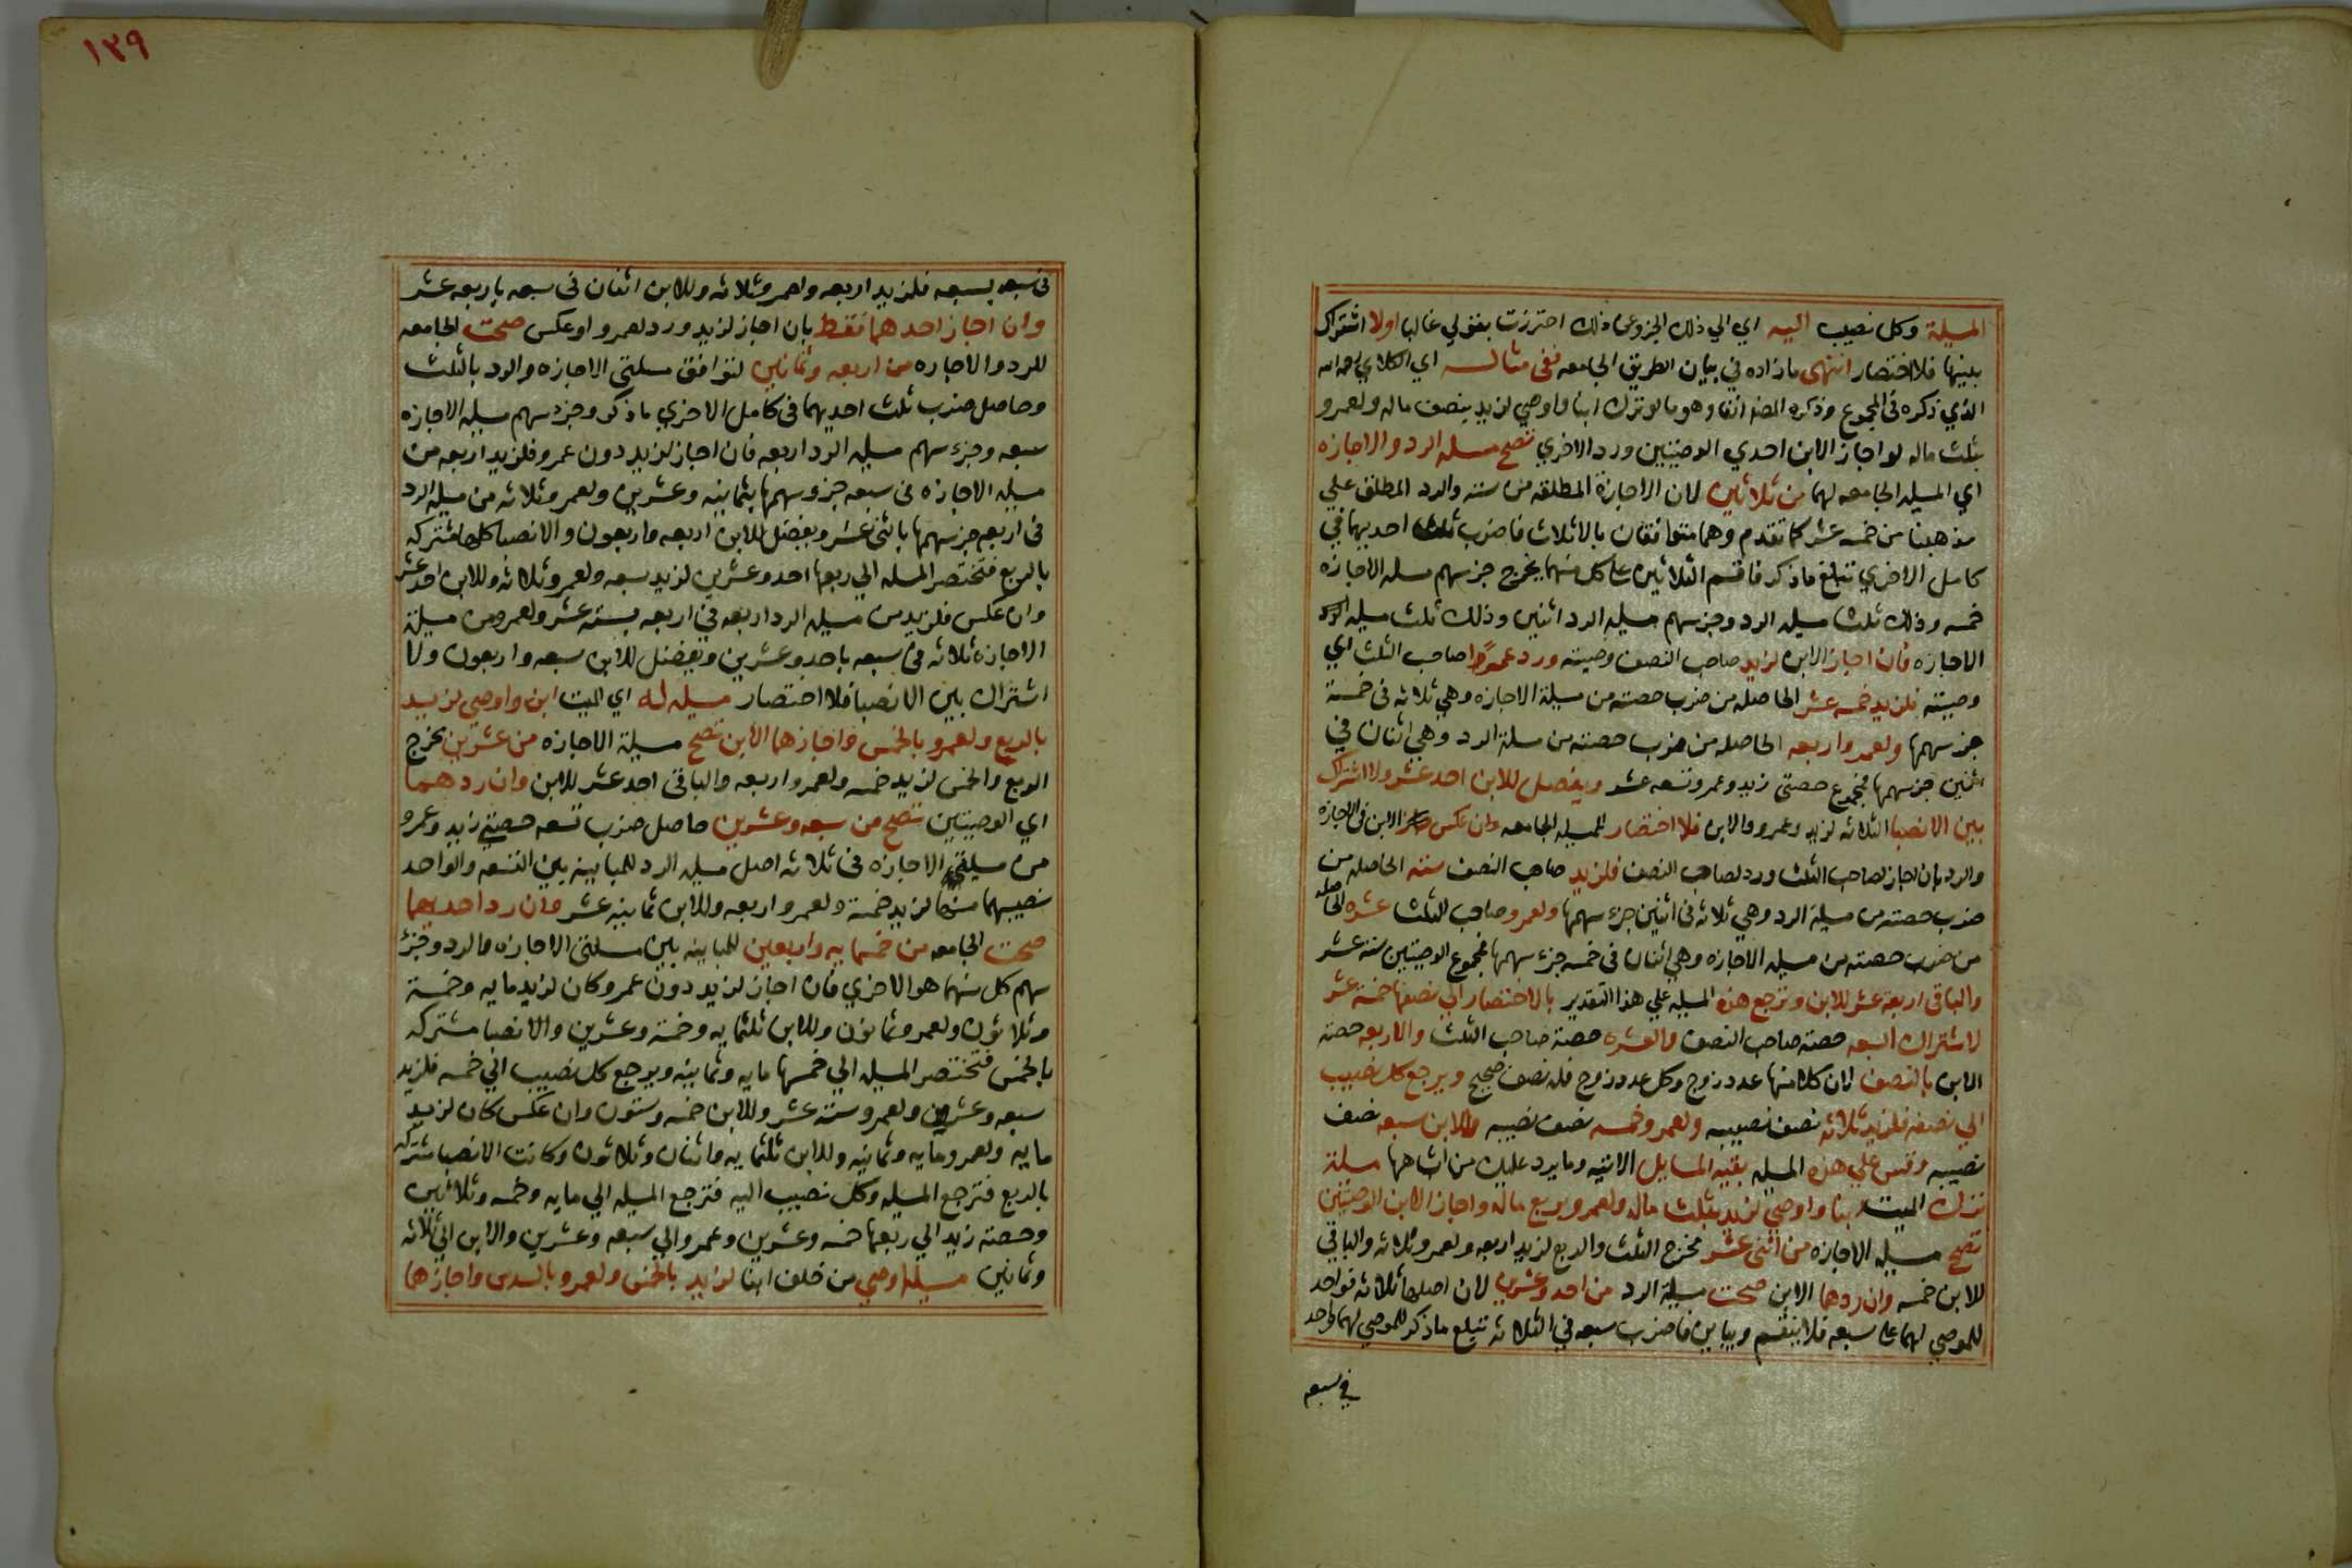 المسيلة وكل نصيب اليه اي الي ذلك الجزو عما ذلك احترزت بقولي غالبا اولا اشتراك
بينها فلا اختصار انتهى ما زاده في بيان الطريق الجامعه ففي مثاله اي الكلاي رحمه الله
الذي ذكره في المجموع وذكره المصنف انفا وهو ما لو ترك ابنا واوصي لزيد بنصف ماله ولعمرو
بثلث ماله لو اجاز الابن احدي الوصيتين ورد الاخري تصح مسله الرد والاجازه
اي المسيله الجامعه لهما من ثلاثين لان الاجازة المطلقه من سته والرد المطلق علي
مذهبنا من خمسه عشر كما تقدم وهما متوافقان بالاثلاث فاضرب ثلث احديهما في
كامل الاخري تبلغ ما ذكر فاقسم الثلاثين علي كل منهما يخرج جز سهم مسله الاجازه
خمسه وذلك ثلث مسيله الرد وجز سهم مسيله الرد اثنين وذلك ثلث مسيله
الاجازه فان اجاز الابن لزيد صاحب النصف وصيته ورد عمرًوا صاحب الثلث اي
وصيته فلزيد خمسه عشر الحاصله من ضرب حصته من مسيلة الاجازه وهي ثلاثه في خمسة
جز سهمها ولعمرو اربعه الحاصله من ضرب حصته من مسلة الرد وهي اثنان في
اثنين جز سهمها فمجموع حصتي زيد وعمرو تسعه عشر ويفضل للابن احد عشر ولا اشتراك
بين الانصبا الثلاثه لزيد وعمرو والابن فلا اختصار للمسيله الجامعه وان عكس الابن في الاجازه
والرد بان اجاز لصاحب الثلث ورد لصاحب النصف فلزيد صاحب النصف سته الحاصله من
ضرب حصته من مسيلة الرد وهي ثلاثه في اثنين جزء سهمها ولعمرو صاحب الثلث عشره الحاصله
من ضرب حصته من مسيله الاجازه وهي اثنان في خمسه جزء سهمها فمجموع الوصيتين سته عشر
والباقي اربعة عشر للابن وترجع هذه المسيله علي هذا التقدير بالاختصار الي نصفها خمسة عشر
لاشتراك الستة حصته صاحب النصف والعشره حصة صاحب الثلث والاربعه حصته
الابن بالنصف لان كلا منها عدد زوج وكل عدد زوج فله نصف صحيح ويرجع كل نصيب
الي نصفه فلزيد ثلاثه نصف نصيبه ولعمرو خمسه نصف نصيبه وللابن سبعه نصف
نصيبه وقس علي هذه المسيله بقيه المسايل الاتيه وما يرد عليك من اشباهها مسلة
ترك الميت ابنا واوصي لزيد بثلث ماله ولعمرو بربع ماله واجاز الابن الوصيتين
تصح مسيله الاجازه من اثني عشر مخرج الثلث والربع لزيد اربعه ولعمرو ثلاثه والباقي
للابن خمسه وان ردهما الابن صحت مسيلة الرد من احد وعشرين لان اصلها ثلاثه فواحد
للموصي لهما علي سبعه فلا ينقسم ويباين فاضرب سبعه في الثلاثه تبلغ ما ذكر للموصي لهما واحد
في سبعه
١٣٩
في سبعه بسبعه فلزيد اربعه ولعمرو ثلاثه وللابن اثنان في سبعه باربعه عشر
وان اجاز احدهما فقط بان اجاز لزيد ورد لعمرو او عكس صحت الجامعه
للرد والاجازه من اربعه وثمانين لتوافق مسلتي الاجازه والرد بالثلث
وحاصل ضرب ثلث احديهما في كامل الاخري ما ذكر وجزء سهم مسيله الاجازه
سبعه وجزء سهم مسيله الرد اربعه فان اجاز لزيد دون عمرو فلزيد اربعه من
مسيله الاجازه في سبعه جزو سهمها بثمانيه وعشرين ولعمرو ثلاثه من مسيله الرد
في اربعه جز سهمها باثني عشر ويفضل للابن اربعه واربعون والانصبا كلها مشتركه
بالربع فتختصر المسله الي ربعها احد وعشرين لزيد سبعه ولعمرو ثلاثه وللابن احد عشر
وان عكس فلزيد من مسيله الرد اربعه في اربعه بسته عشر ولعمرو من مسيلة
الاجازه ثلاثه في سبعه باحد وعشرين ويفضل للابن سبعه واربعون ولا
اشتراك بين الانصبا فلا اختصار مسيله له اي الميت ابن واوصي لزيد
بالربع ولعمرو بالخمس واجازهما الابن تصح مسيلة الاجازه من عشرين مخرج
الربع والخمس لزيد خمسه ولعمرو اربعه والباقي احد عشر للابن وان ردهما
اي الوصيتين تصح من سبعه وعشرين حاصل ضرب تسعه حصتي زيد وعمرو
من مسيلتي الاجازه في ثلاثه اصل مسيله الرد للمباينه بين التسعه والواحد
نصيبهما منها لزيد خمسة ولعمرو اربعه وللابن ثمانيه عشر وان رد احديهما
صحت الجامعه من خمسمايه واربعين للمباينه بين مسلتي الاجازه والرد وجزء
سهم كل منهما هو الاخري فان اجاز لزيد دون عمرو كان لزيد مايه وخمسة
وثلاثون ولعمرو ثمانون وللابن ثلثمايه وخمسة وعشرين والانصبا مشتركه
بالخمس فتختصر المسيله الي خمسها مايه وثمانيه ويرجع كل نصيب الي خمسه فلزيد
سبعه وعشرين ولعمرو ستة عشر وللابن خمسه وستون وان عكس كان لزيد
مايه ولعمرو مايه وثمانيه وللابن ثلثمايه واثنان وثلاثون وكانت الانصبا مشتركه
بالربع فترجع المسيله وكل نصيب اليه فترجع المسيله الي مايه وخمسه وثلاثين
وحصته زيد الي ربعها خمسه وعشرين وعمرو الي سبعه وعشرين والابن الي ثلاثه
وثمانين مسيله اوصي من خلف ابنا لزيد بالخمس ولعمرو بالسدس واجازهما